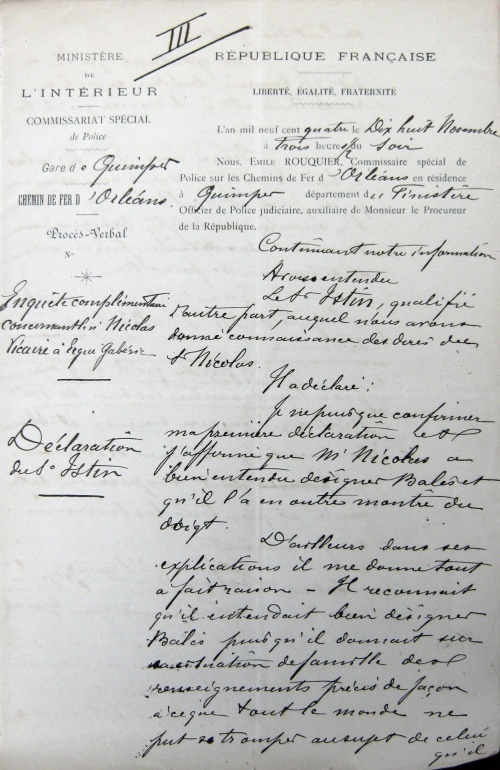 III
MINISTÈRE
DE
L'INTÉRIEUR
COMMISSARIAT SPÉCIAL
de Police
Gare de Quimper
CHEMIN DE FER D'Orléans
Procès-Verbal
N°
Enquête complémentaire
concernant l'
Nicolas
Vicaire à Ergué Gabéric
Déclaration
du Sr Istin
RÉPUBLIQUE FRANÇAISE
LIBERTÉ, ÉGALITÉ, FRATERNITÉ
L'an mil neuf cent quatre le Dix huit Novembre
à trois heures du soir
Nous, EMILE ROUQUIER, Commissaire spécial de
Police sur les Chemins de Fer d'Orléans en résidence
à Quimper département du Finistère
Officier de Police judiciaire, auxiliaire de Monsieur le Procureur
de la République.
Continuant notre information
Avons entendu
Le Sr Istin, qualifié
d'autre part, auquel nous avons
donné connaissance des dires de
Nicolas.
Il a déclaré :
Je ne puis que confirmer
ma première déclaration et
j'affirme que Mr Nicolas a
bien entendu désigner Balès et
qu'il l'a en outre montré du
doigt.
D'ailleurs dans ses
explications il me donne tout
à fait raison – Il reconnait
qu'il entendait bien désigner
Balès puisqu'il donnait sur
sa situation de famille des
renseignements précis de façon
à ce que tout le monde ne
put se tromper au sujet de celui
qu'il